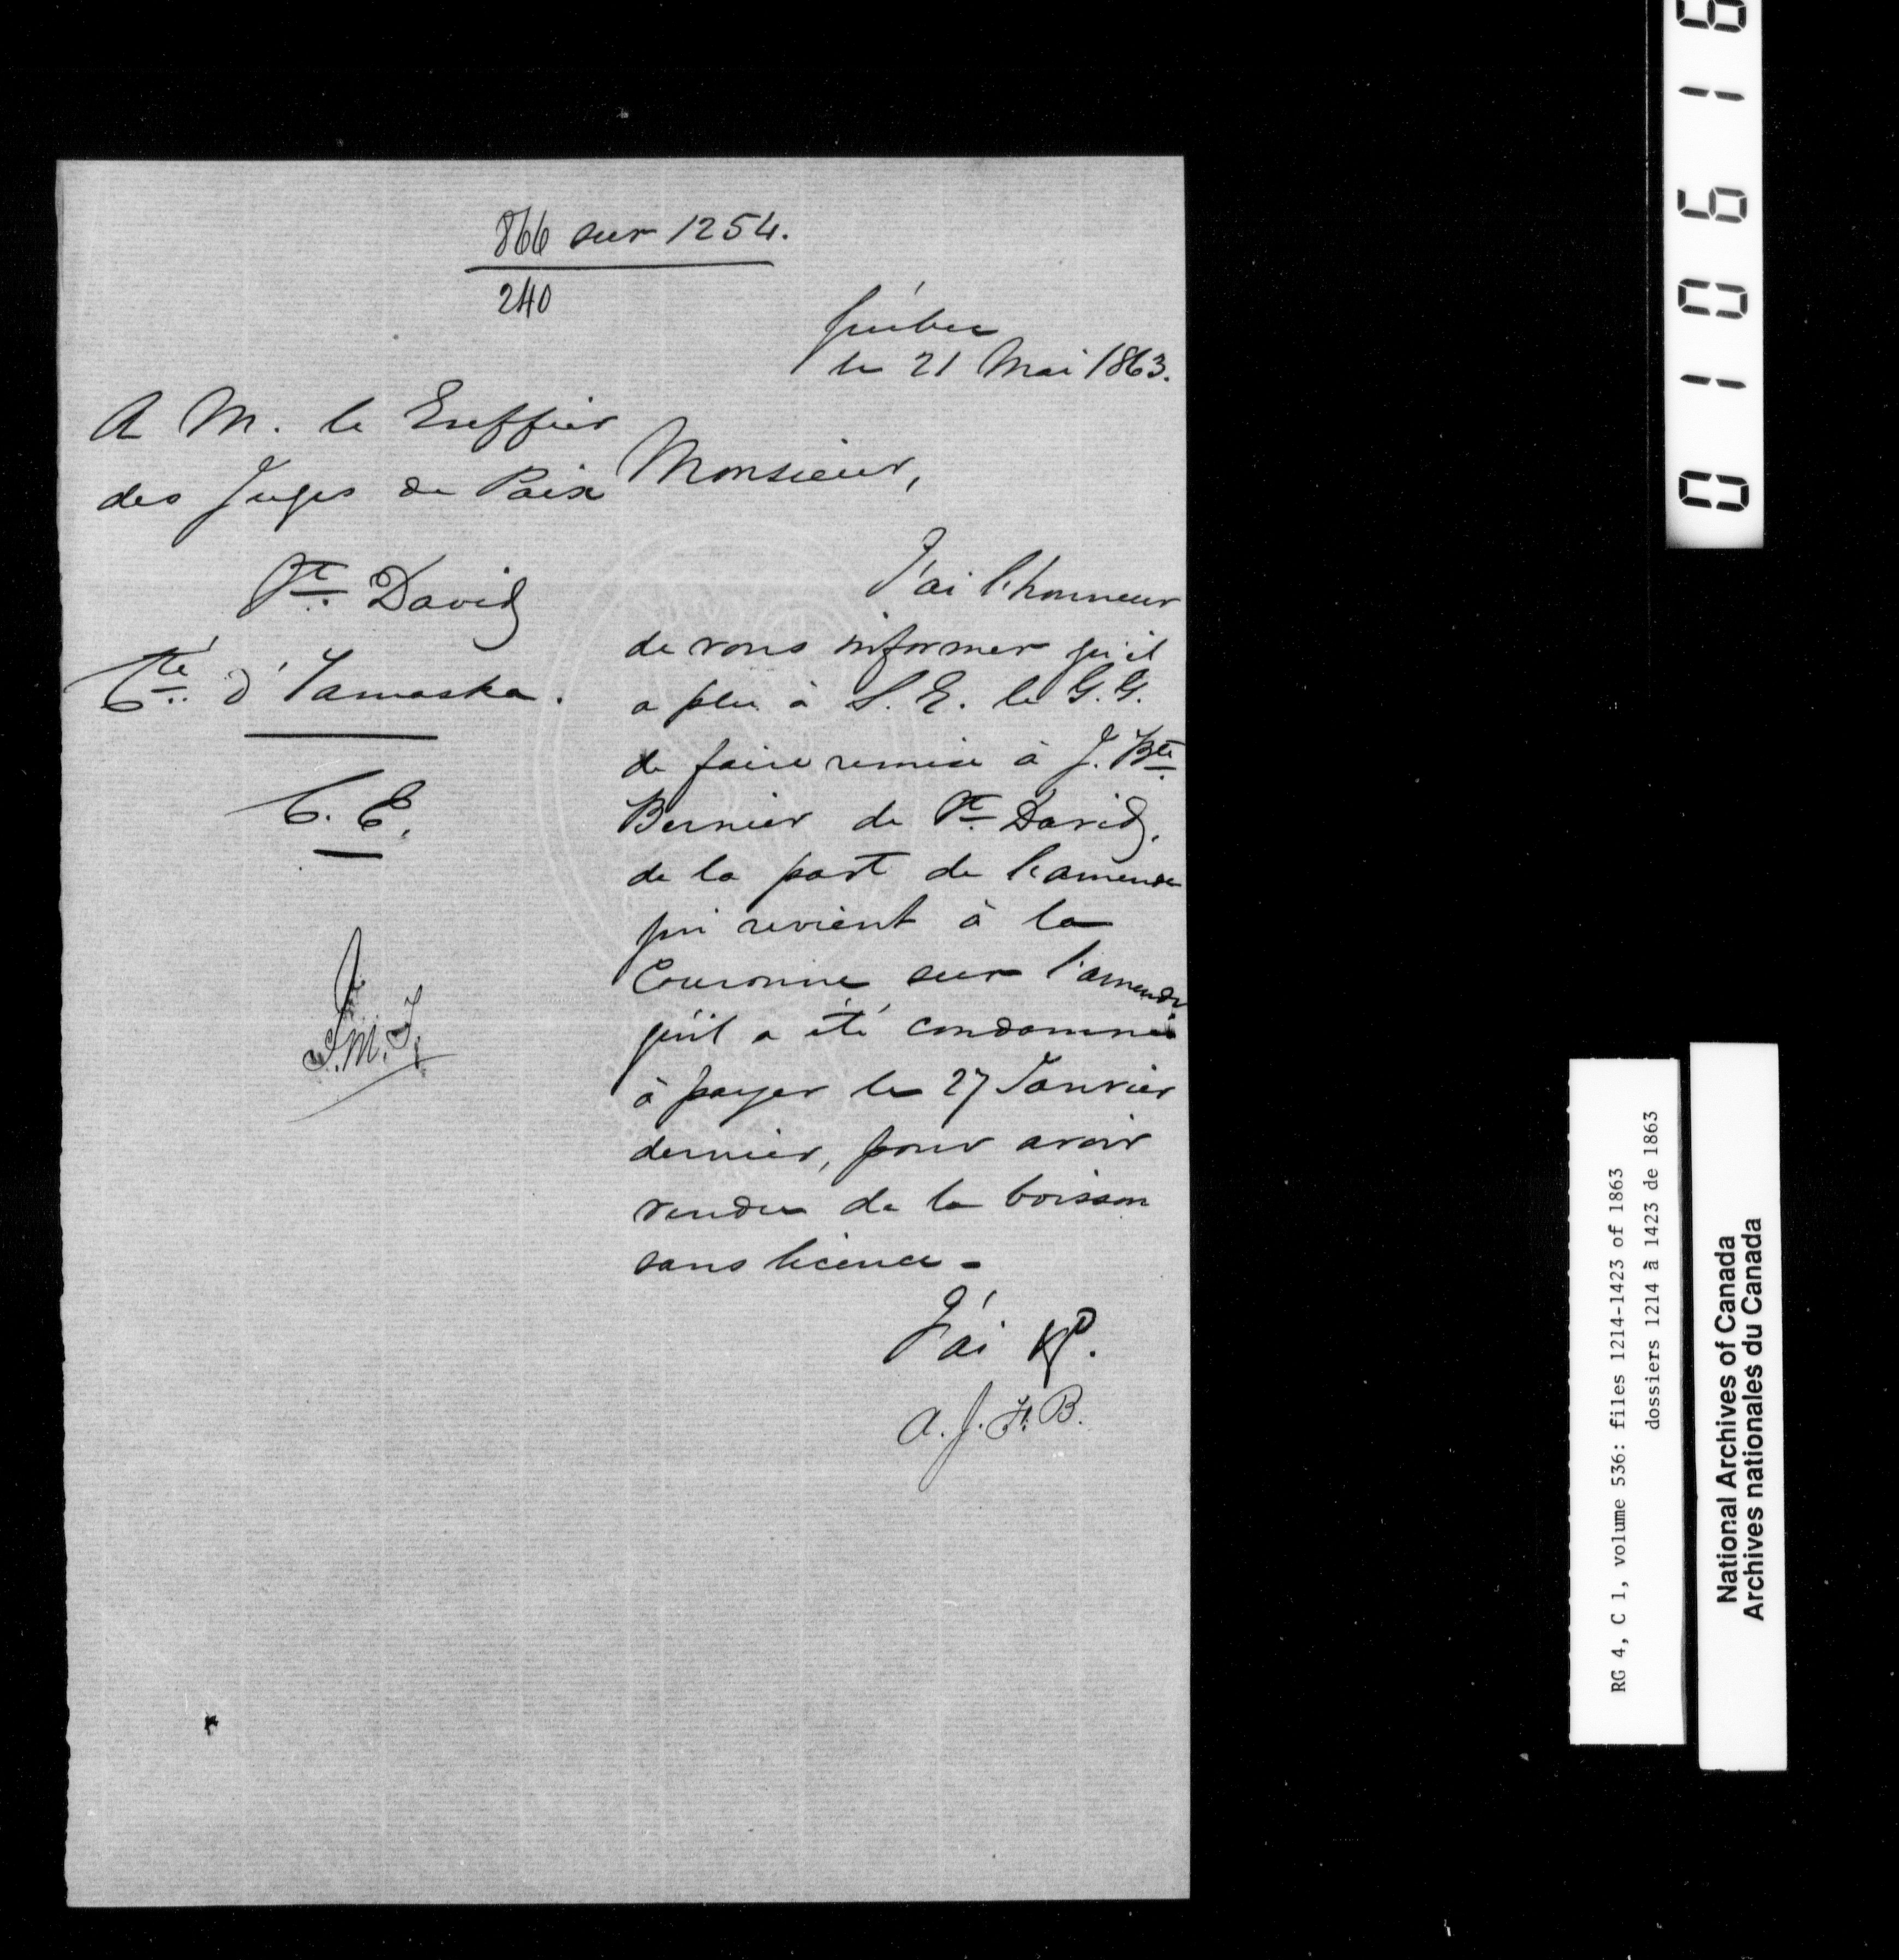 866 sur 1254.
240
Québec
le 21 Mai 1863.
A M. le Greffier
des Juges de Paix
St. David
Cté. d'Yamaska.
C. E.
Monsieur,
J'ai l'honneur
de vous informer qu'il
a plu à S. E. le G. G.
de faire remise à J. Bte
Bernier de St. David,
de la part de l'amende
qui revient à la
Couronne sur l'amende
qu'il a été condamné
à payer le 27 Janvier
dernier, pour avoir
vendu de la boisson
sans licence -
J'ai &.
A. J. F. B.
RG 4, C 1, volume 536: files 1214-1423 of 1863
dossiers 1214 à 1423 de 1863
National Archives of Canada
Archives nationales du Canada